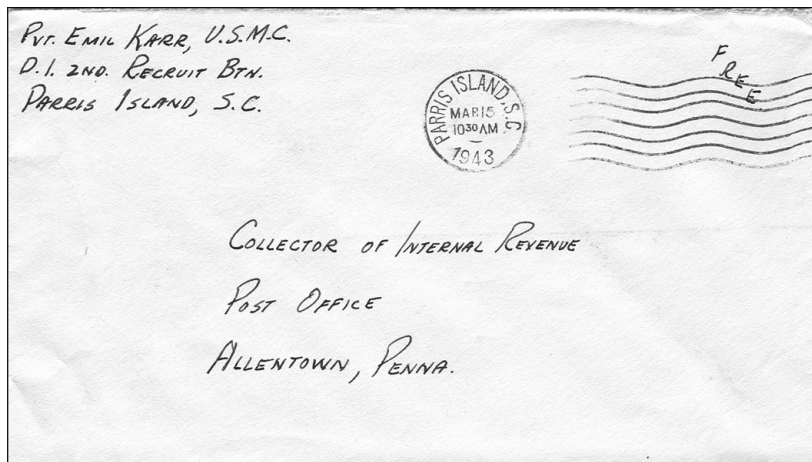 Pvt. Emil Karr, U.S.M.C.
D.I. 2nd. Recruit Btn.
Parris Island, S.C.
FREE
PARRIS ISLAND, S.C.
MAR 15
10 30 AM
1943
Collector of Internal Revenue
Post Office
Allentown, Penna.